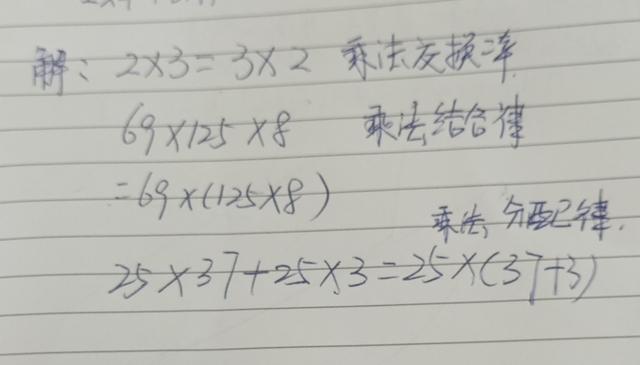 解：2×3=3×2 乘法交换律
69×125×8 乘法结合律
=69×(125×8)
乘法分配律.
25×37+25×3=25×(37+3)